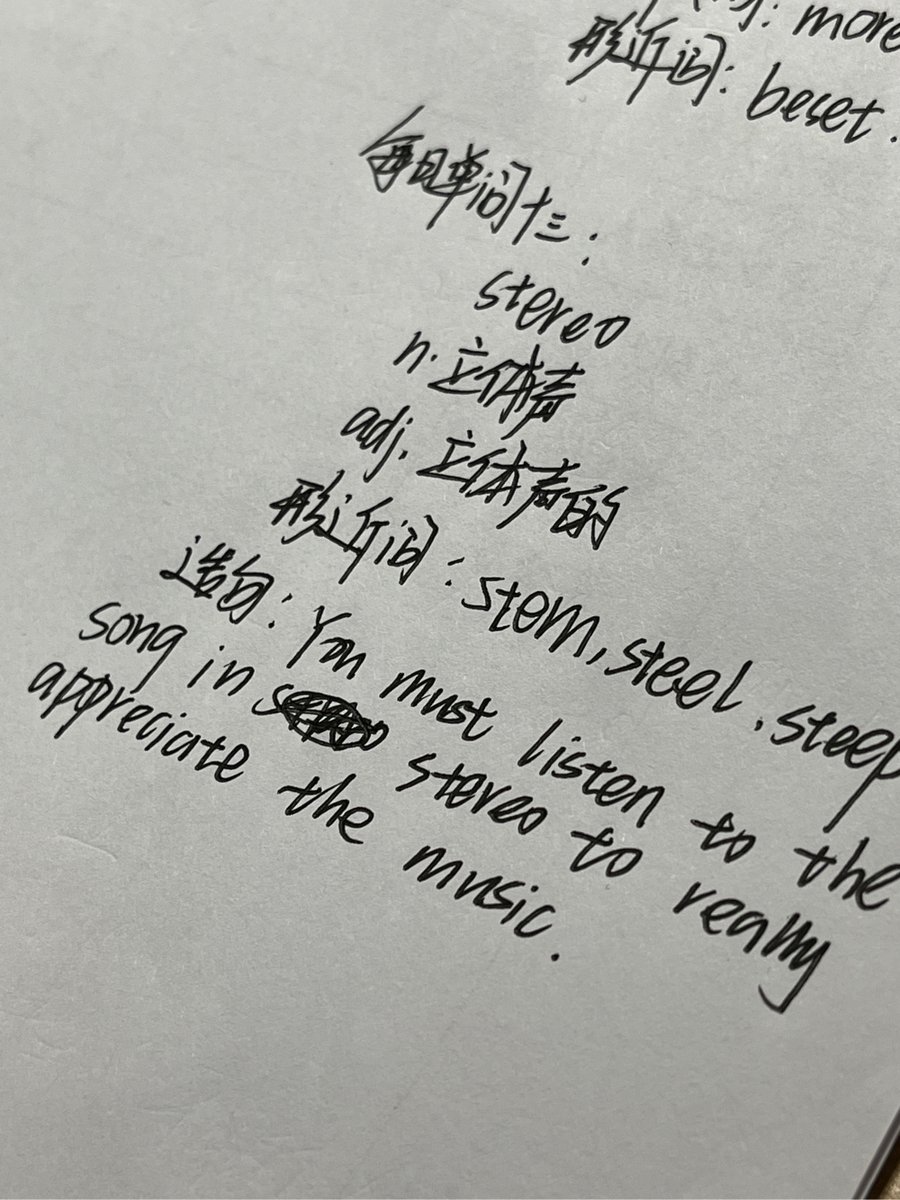 词: more
形近词: beset.
每日单词十三:
stereo
n. 立体声
adj. 立体声的
形近词: stem, steel, steep
造句: You must listen to the
song in stereo to really
appreciate the music.